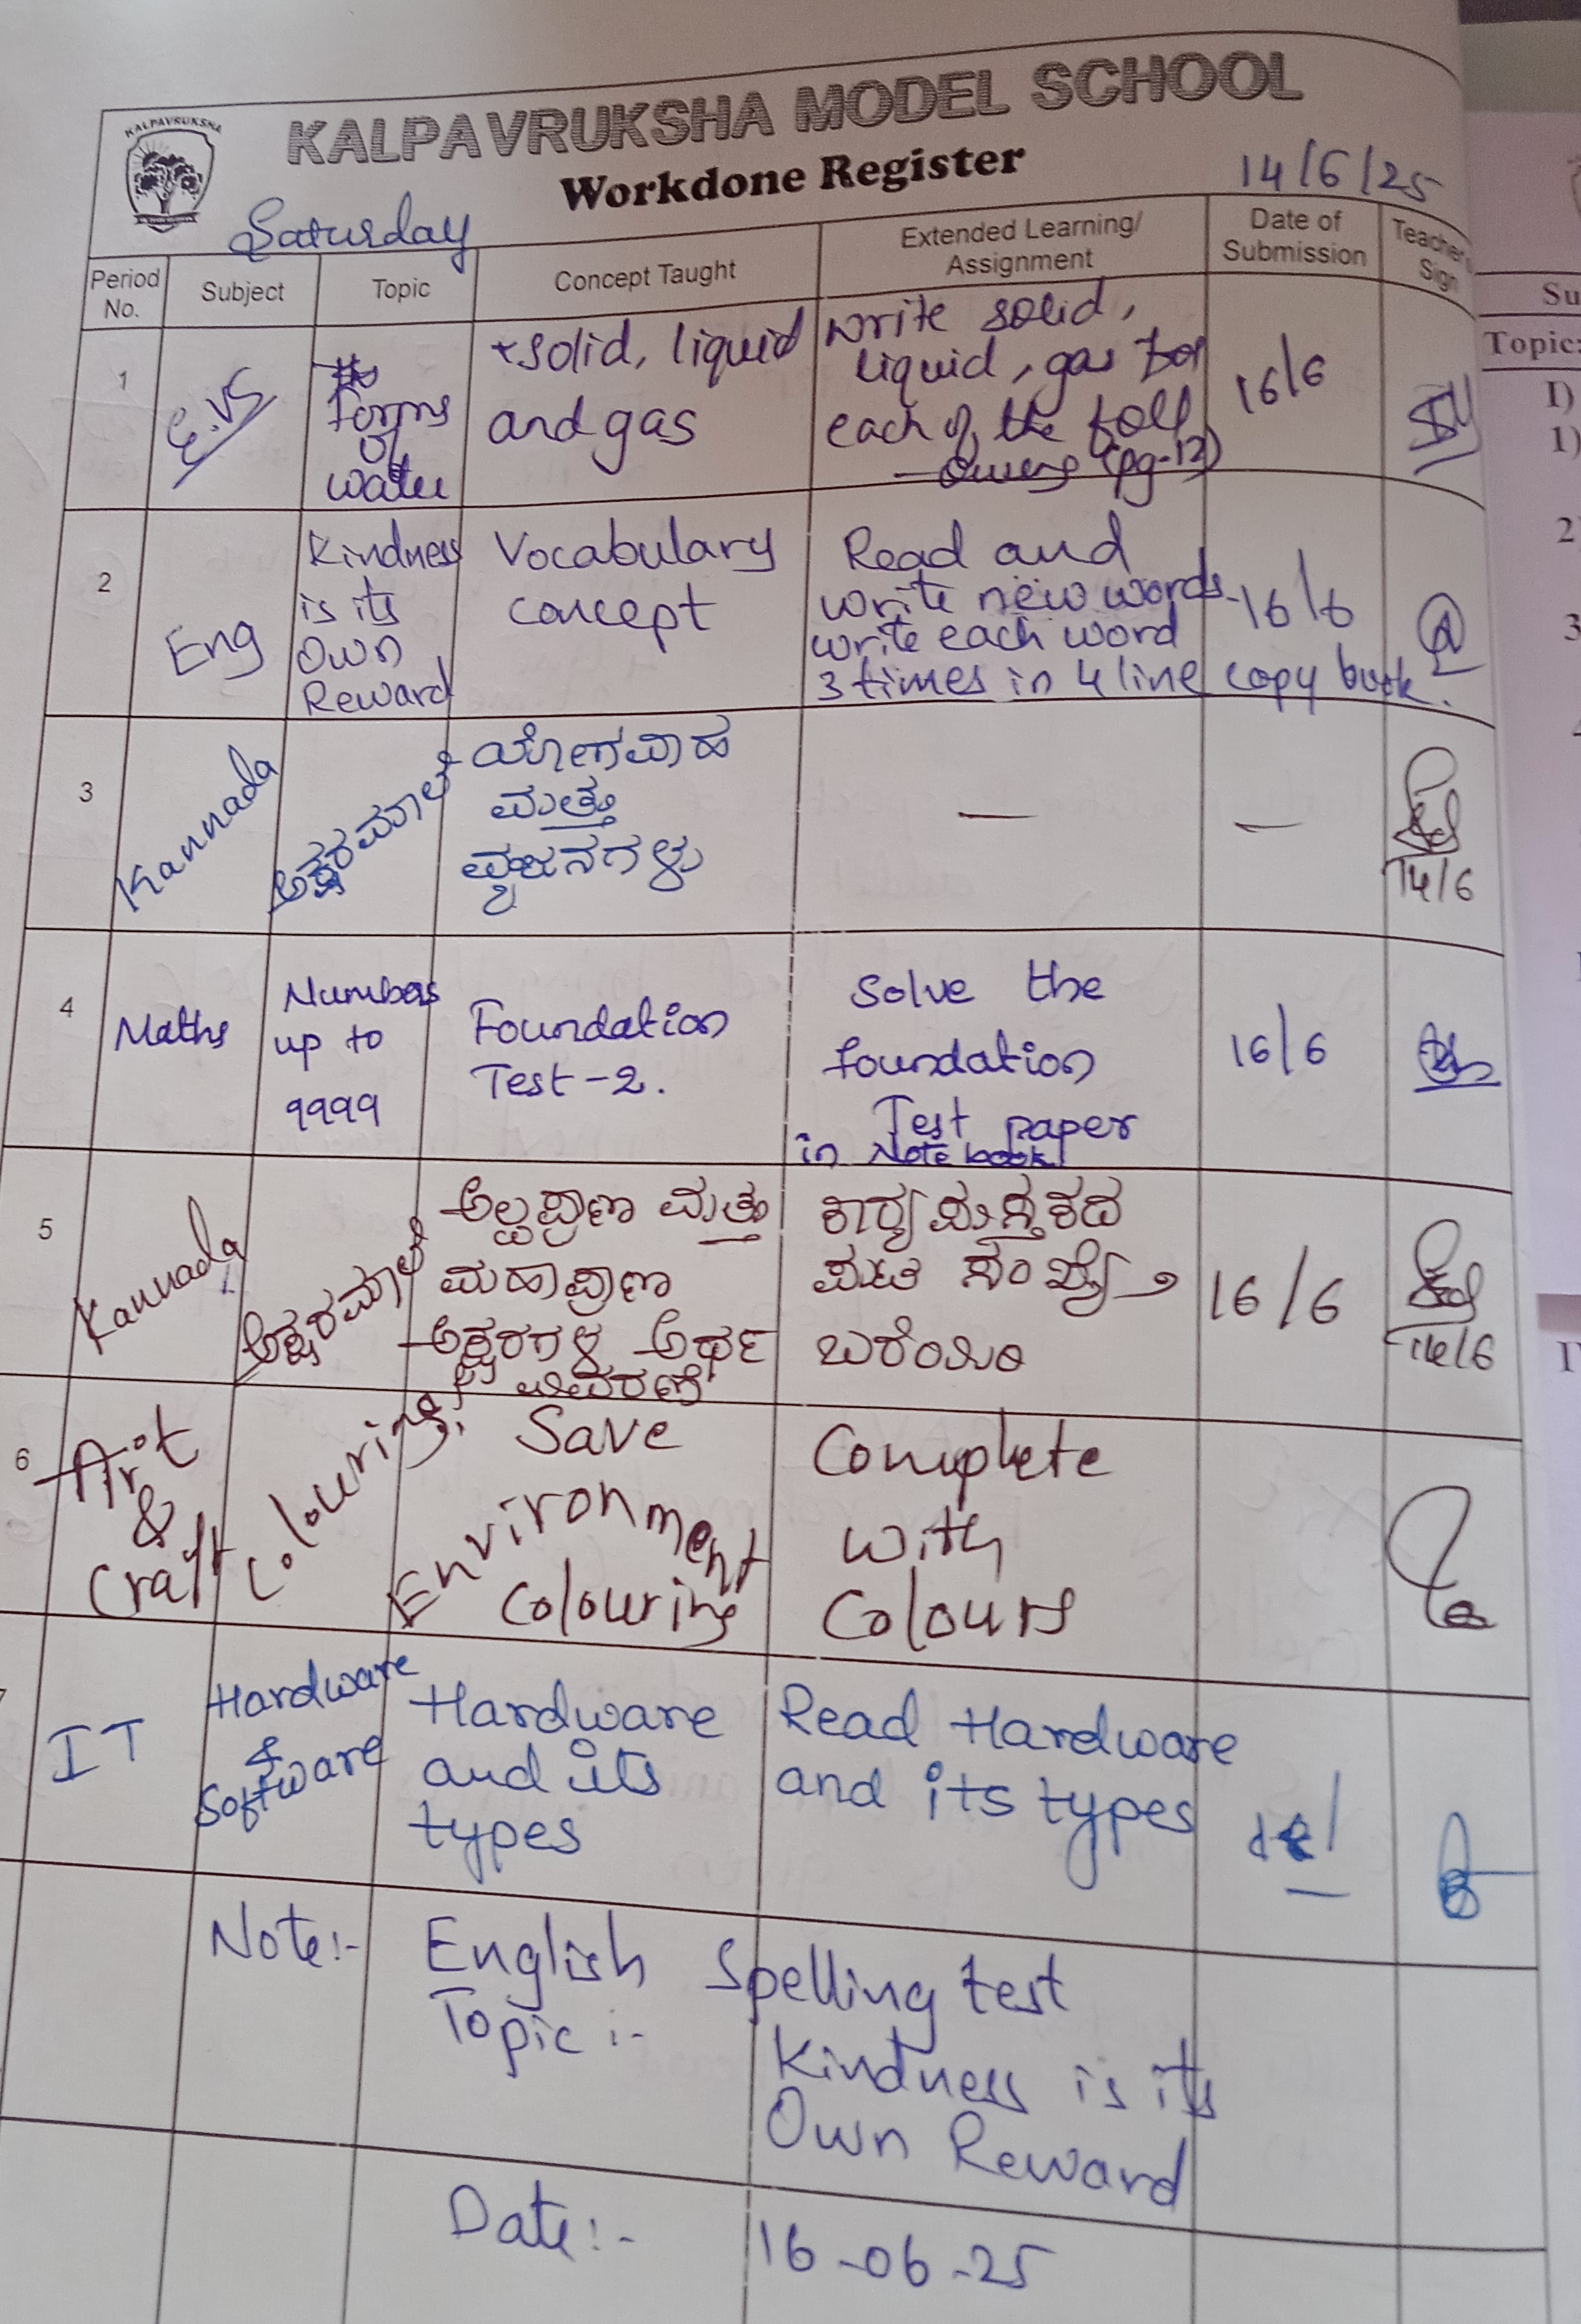 KALPAVRUKSHA
KALPAVRUKSHA MODEL SCHOOL
Workdone Register
14/6/25
Saturday
Period No.
Subject
Topic
Concept Taught
Extended Learning/
Assignment
Date of
Submission
Teacher's
Sign
1
E.VS
Forms
of
water
solid, liquid
and gas
write solid,
liquid, gas for
each of the foll
(pg-12)
16/6
2
Eng
Kindness
is its
own
Reward
Vocabulary
concept
Read and
write new words
write each word
3 times in 4 line copy book.
16/6
3
Kannada
ಅಕ್ಷರಮಾಲೆ
ಯೋಗವಾಹ
ಮತ್ತು
ವ್ಯಂಜನಗಳು
—
—
14/6
4
Maths
Numbers
up to
9999
Foundation
Test-2.
Solve the
foundation
Test paper
in Note book
16/6
5
Kannada
ಅಕ್ಷರಮಾಲೆ
ಅಲ್ಪಪ್ರಾಣ ಮತ್ತು
ಮಹಾಪ್ರಾಣ
ಅಕ್ಷರಗಳ ಅರ್ಥ
ವಿವರಣೆ
ಕಾರ್ಯಪುಸ್ತಕದ
ಪುಟ ಸಂಖ್ಯೆ ೨
ಬರೆಯಿರಿ
16/6
14/6
6
Art
&
Craft
Colouring
Save
Environment
Colouring
Complete
with
Colours
IT
Hardware
&
Software
Hardware
and its
types
Read Hardware
and its types
Note:-
English Spelling test
Topic:-
Kindness is its
Own Reward
Date:-
16-06-25
Su
Topic:
I)
1)
2)
3